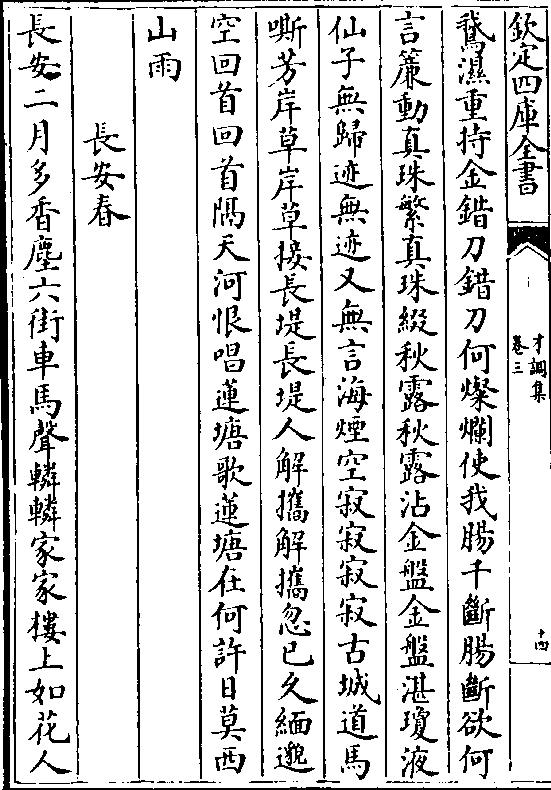 欽定四庫全書
才調集
卷三
十四
鵞濕重持金錯刀錯刀何燦爛使我腸千斷腸斷欲何
言簾動真珠繁真珠綴秋露秋露沾金盤金盤湛瓊液
仙子無歸迹無迹又無言海煙空寂寂寂寂古城道馬
嘶芳岸草岸草接長堤長堤人解攜解攜忽已久緬邈
空回首回首隔天河恨唱蓮塘歌蓮塘在何許日莫西
山雨
長安春
長安二月多香塵六街車馬聲轔轔家家樓上如花人